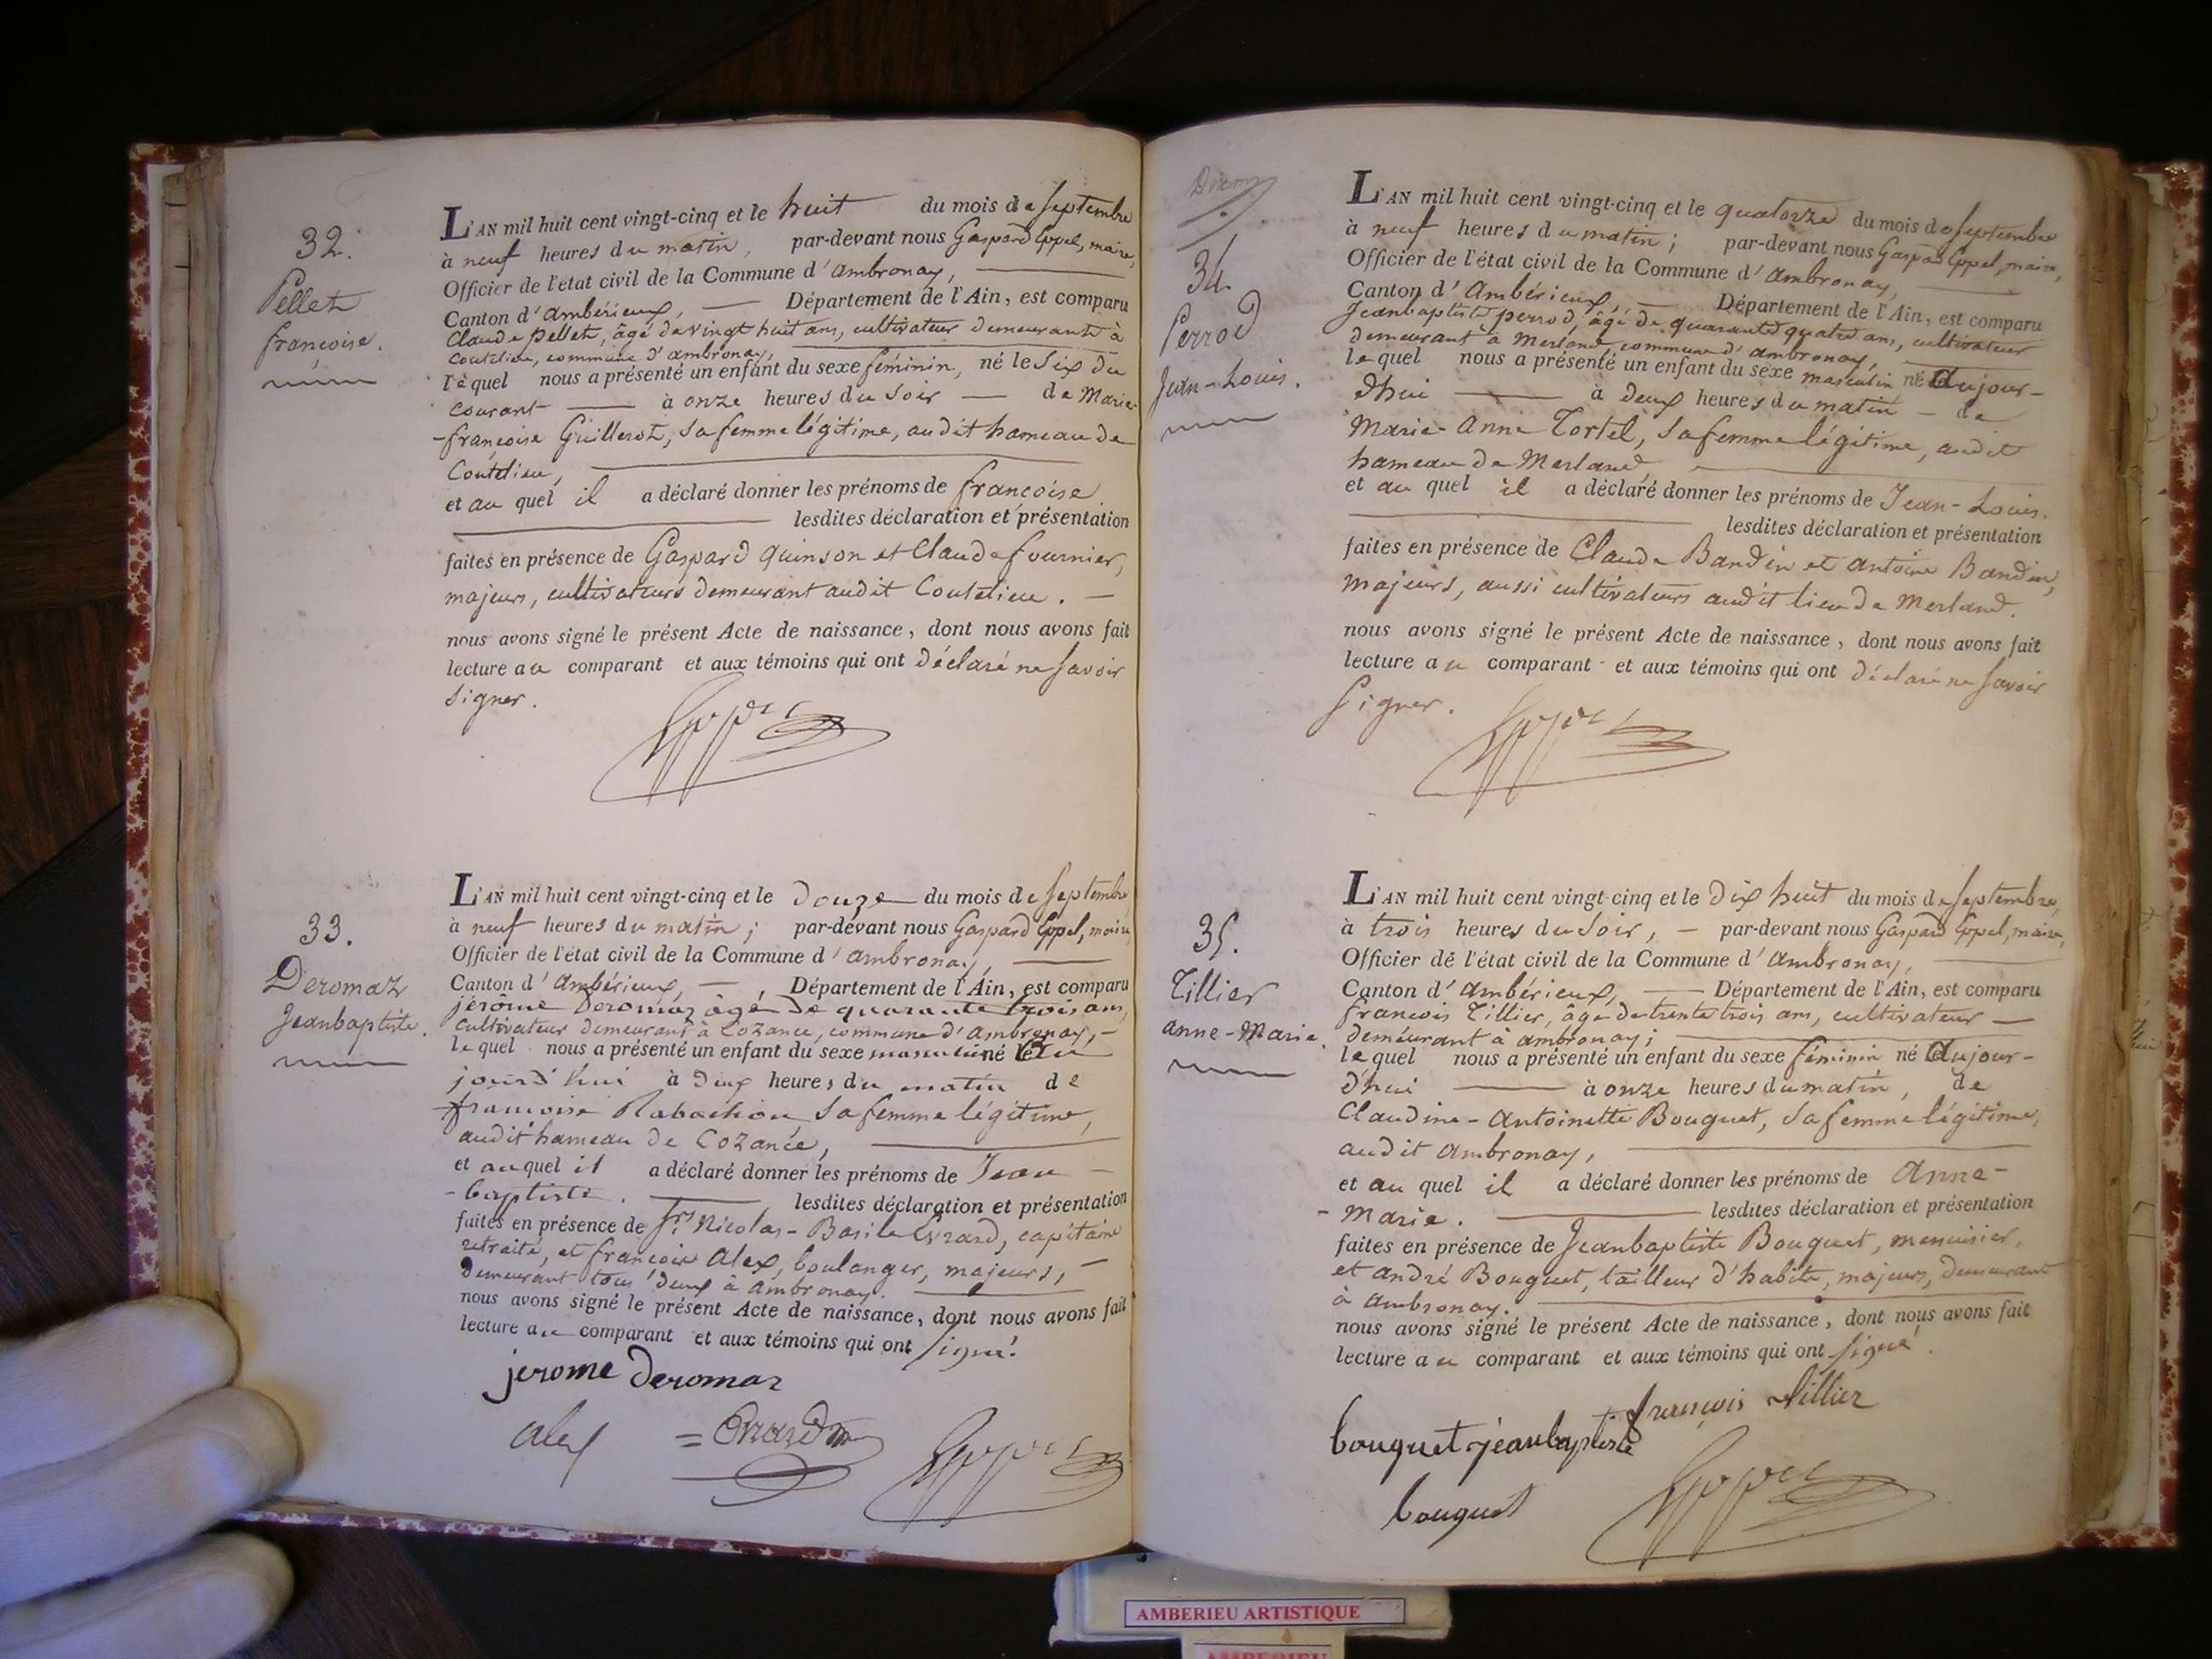 32.
Pellet
françoise.
L'AN mil huit cent vingt-cinq et le huit du mois de septembre
à neuf heures du matin, par-devant nous Gaspard Eppel, maire,
Officier de l'état civil de la Commune d'ambronay,
Canton d'ambérieux, Département de l'Ain, est comparu
Claude pellet, âgé de vingt huit ans, cultivateur demeurante à
Coutelieu, commune d'ambronay,
lequel nous a présenté un enfant du sexe féminin, né le six du
courant à onze heures du soir de Marie-
-françoise Guillerot, sa femme légitime, audit hameau de
Coutelieu,
et au quel il a déclaré donner les prénoms de françoise
lesdites déclaration et présentation
faites en présence de Gaspard quinson et Claude fournier,
majeurs, cultivateurs demeurant audit Coutelieu.
nous avons signé le présent Acte de naissance, dont nous avons fait
lecture au comparant et aux témoins qui ont déclaré ne savoir
signer.
33.
Deromaz
Jeanbaptiste.
L'AN mil huit cent vingt-cinq et le douze du mois de septembre
à neuf heures du matin; par-devant nous Gaspard Eppel, maire,
Officier de l'état civil de la Commune d'ambronay,
Canton d'Ambérieux, Département de l'Ain, est comparu
jérôme Deromaz âgé de quarante trois ans,
cultivateur demeurant à Cozance, commune d'ambronay,
lequel nous a présenté un enfant du sexe masculin né
jourd'hui à deux heures du matin de
françoise Rabachon sa femme légitime,
audit hameau de Cozance,
et auquel il a déclaré donner les prénoms de Jean
-baptiste. lesdites déclaration et présentation
faites en présence de Nicolas-Basile Evrard, capitaine
retraité, et françois Alex, boulanger, majeurs,
demeurant tous deux à ambronay.
nous avons signé le présent Acte de naissance, dont nous avons fait
lecture au comparant et aux témoins qui ont signé.
jerome deromaz
alex Evrard
34.
Perrod
Jean-Louis.
L'AN mil huit cent vingt-cinq et le quatorze du mois de septembre
à neuf heures du matin; par-devant nous Gaspard Eppel, maire,
Officier de l'état civil de la Commune d'ambronay,
Canton d'Ambérieux, Département de l'Ain, est comparu
Jeanbaptiste perrod, âgé de quarante quatre ans, cultivateur
demeurant à Merland commune d'ambronay,
lequel nous a présenté un enfant du sexe masculin né aujour-
d'hui à deux heures du matin de
Marie-Anne Tortel, sa femme légitime, audit
hameau de Merland
et au quel il a déclaré donner les prénoms de Jean-Louis.
lesdites déclaration et présentation
faites en présence de Claude Bandin et antoine Bandin,
majeurs, aussi cultivateurs audit lieu de Merland.
nous avons signé le présent Acte de naissance, dont nous avons fait
lecture au comparant et aux témoins qui ont déclaré ne savoir
signer.
35.
Tillier
anne-Marie.
L'AN mil huit cent vingt-cinq et le dix huit du mois de septembre,
à trois heures du soir, par-devant nous Gaspard Eppel, maire,
Officier de l'état civil de la Commune d'ambronay,
Canton d'ambérieux, Département de l'Ain, est comparu
francois Tillier, âgé de trente trois ans, cultivateur
demeurant à ambronay;
lequel nous a présenté un enfant du sexe féminin né aujour-
d'hui à onze heures du matin, de
Claudine-Antoinette Bouguet, sa femme légitime,
audit ambronay,
et au quel il a déclaré donner les prénoms de Anne-
-Marie. lesdites déclaration et présentation
faites en présence de Jeanbaptiste Bouguet, menuisier,
et andré Bouguet, tailleur d'habits, majeurs, demeurant
à ambronay.
nous avons signé le présent Acte de naissance, dont nous avons fait
lecture au comparant et aux témoins qui ont signé.
françois tillier
bouquet jeanbaptiste
bouquet
AMBERIEU ARTISTIQUE
AMBERIEU